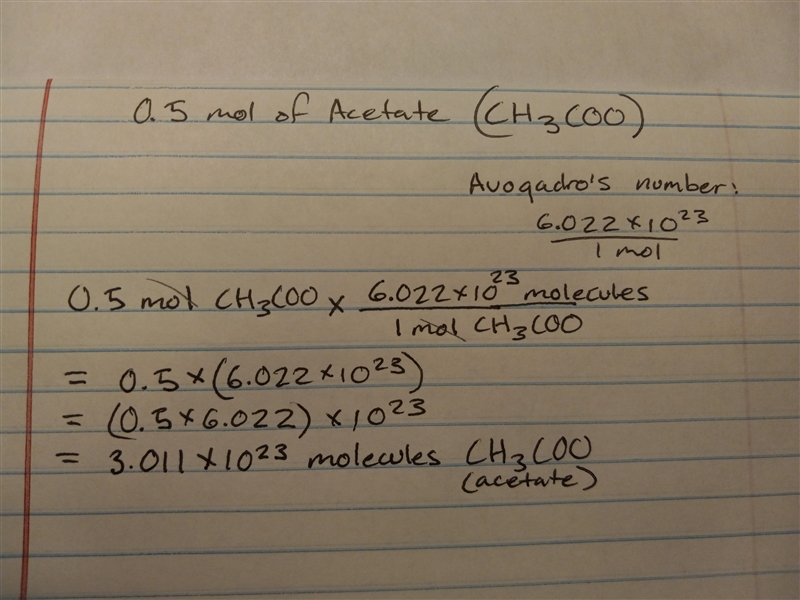 0.5 mol of Acetate (CH3COO)
Avogadro's number:
6.022 × 10^23
1 mol
0.5 mol CH3COO × 6.022 × 10^23 molecules
1 mol CH3COO
= 0.5 × (6.022 × 10^23)
= (0.5 × 6.022) × 10^23
= 3.011 × 10^23 molecules CH3COO
(acetate)